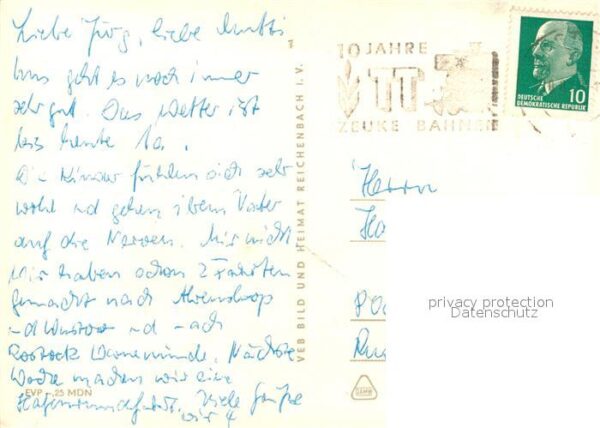 Liebe Jürg, liebe Mutti
Uns geht es noch immer
sehr gut. Das Wetter ist
bis heute 1a.
Die Kinder fühlen sich sehr
wohl und gehen ihrem Vater
auf die Nerven. Mir nicht
Wir haben schon 2 Fahrten
gemacht nach Ahrenshoop
und Wustrow und nach
Rostock Warnemünde. Nächste
Woche machen wir eine
Hafenrundfahrt. Viele Grüße
wir 4
EVP -,25 MDN
VEB BILD UND HEIMAT REICHENBACH I. V.
10 JAHRE
TT
ZEUKE BAHNEN
DEUTSCHE
DEMOKRATISCHE REPUBLIK
10
Herrn
privacy protection
Datenschutz